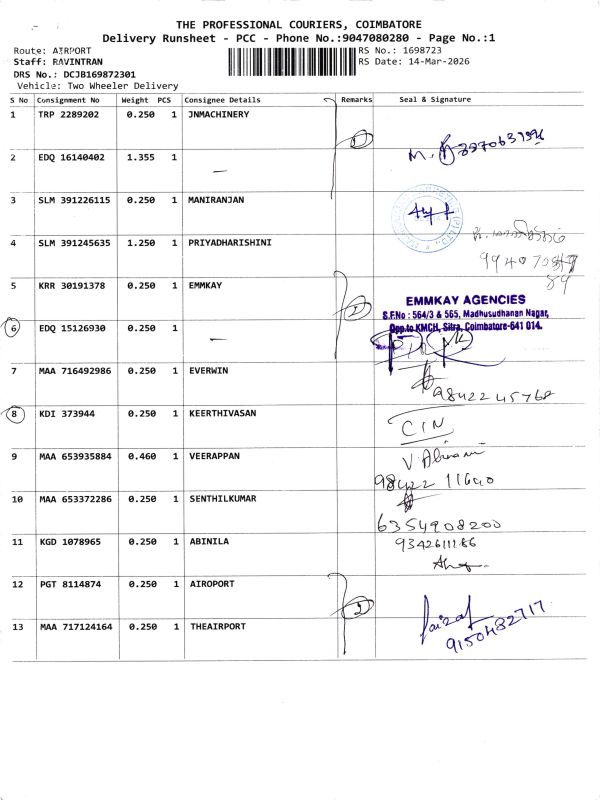 THE PROFESSIONAL COURIERS, COIMBATORE
Delivery Runsheet - PCC - Phone No.:9047080280 - Page No.:1
Route: AIRPORT
RS No.: 1698723
Staff: RAVINTRAN
RS Date: 14-Mar-2026
DRS No.: DCJB169872301
Vehicle: Two Wheeler Delivery
S No Consignment No Weight PCS Consignee Details Remarks Seal & Signature
1 TRP 2289202 0.250 1 JNMACHINERY
2 EDQ 16140402 1.355 1
3 SLM 391226115 0.250 1 MANIRANJAN
4 SLM 391245635 1.250 1 PRIYADHARISHINI
5 KRR 30191378 0.250 1 EMMKAY
EMMKAY AGENCIES
S.F.No : 564/3 & 565, Madhusudhanan Nagar,
Opp.to KMCH, Sitra, Coimbatore-641 014.
6 EDQ 15126930 0.250 1
7 MAA 716492986 0.250 1 EVERWIN
9842245768
8 KDI 373944 0.250 1 KEERTHIVASAN
CIN
9 MAA 653935884 0.460 1 VEERAPPAN
98422 11640
10 MAA 653372286 0.250 1 SENTHILKUMAR
6354908200
11 KGD 1078965 0.250 1 ABINILA
9342611186
12 PGT 8114874 0.250 1 AIROPORT
2
13 MAA 717124164 0.250 1 THEAIRPORT
faizal
9150482717